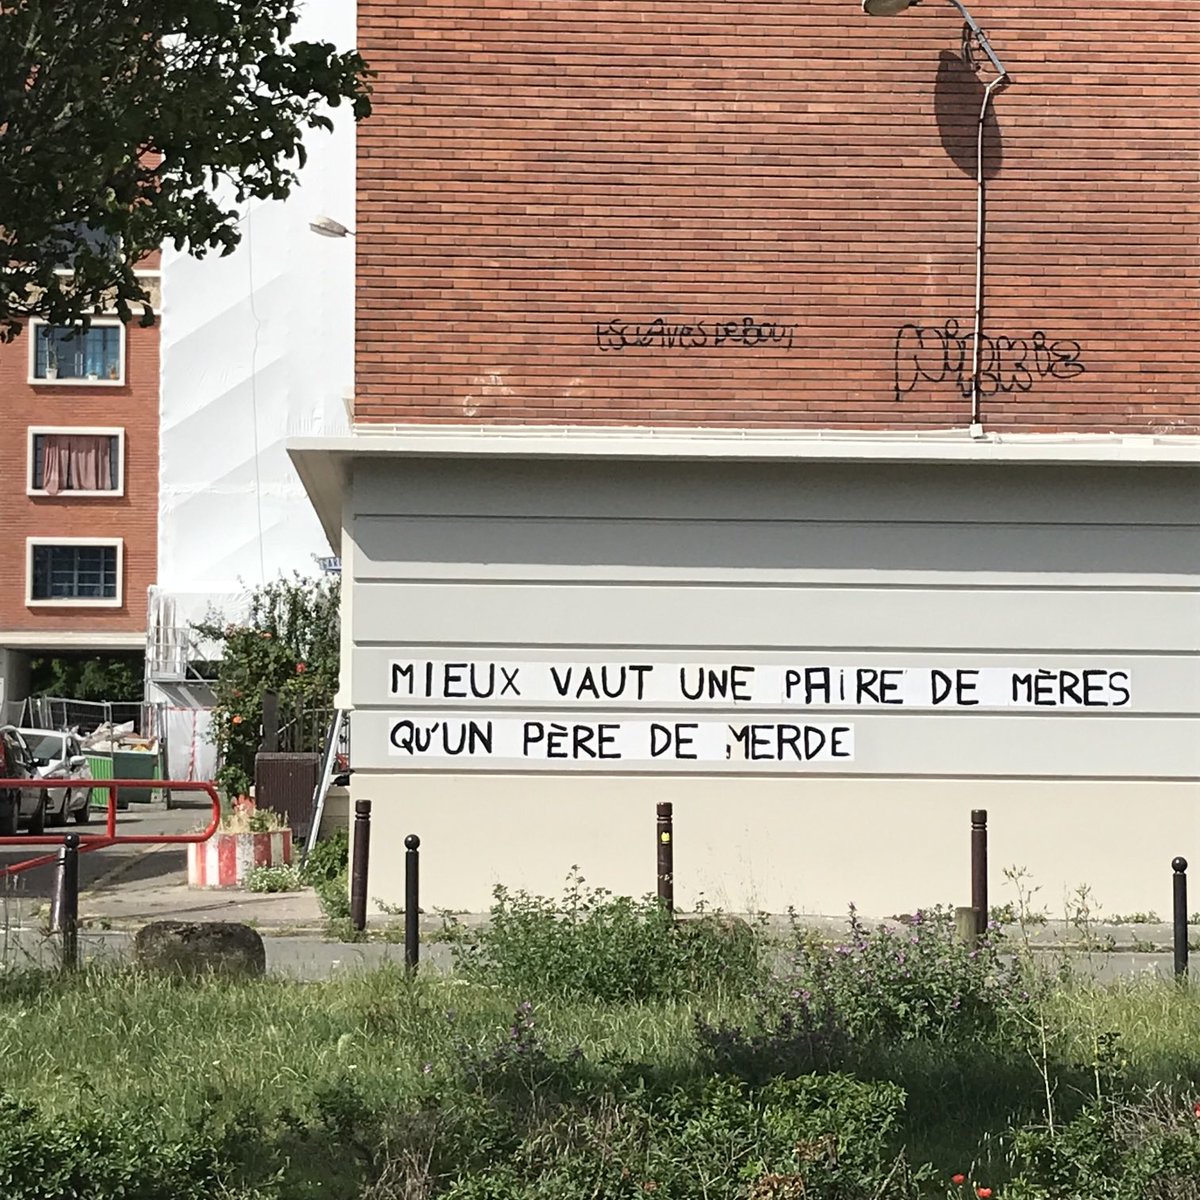 ESCLAVES DEBOUT
MIEUX VAUT UNE PAiRE DE MÈRES
QU'UN PÈRE DE MERDE